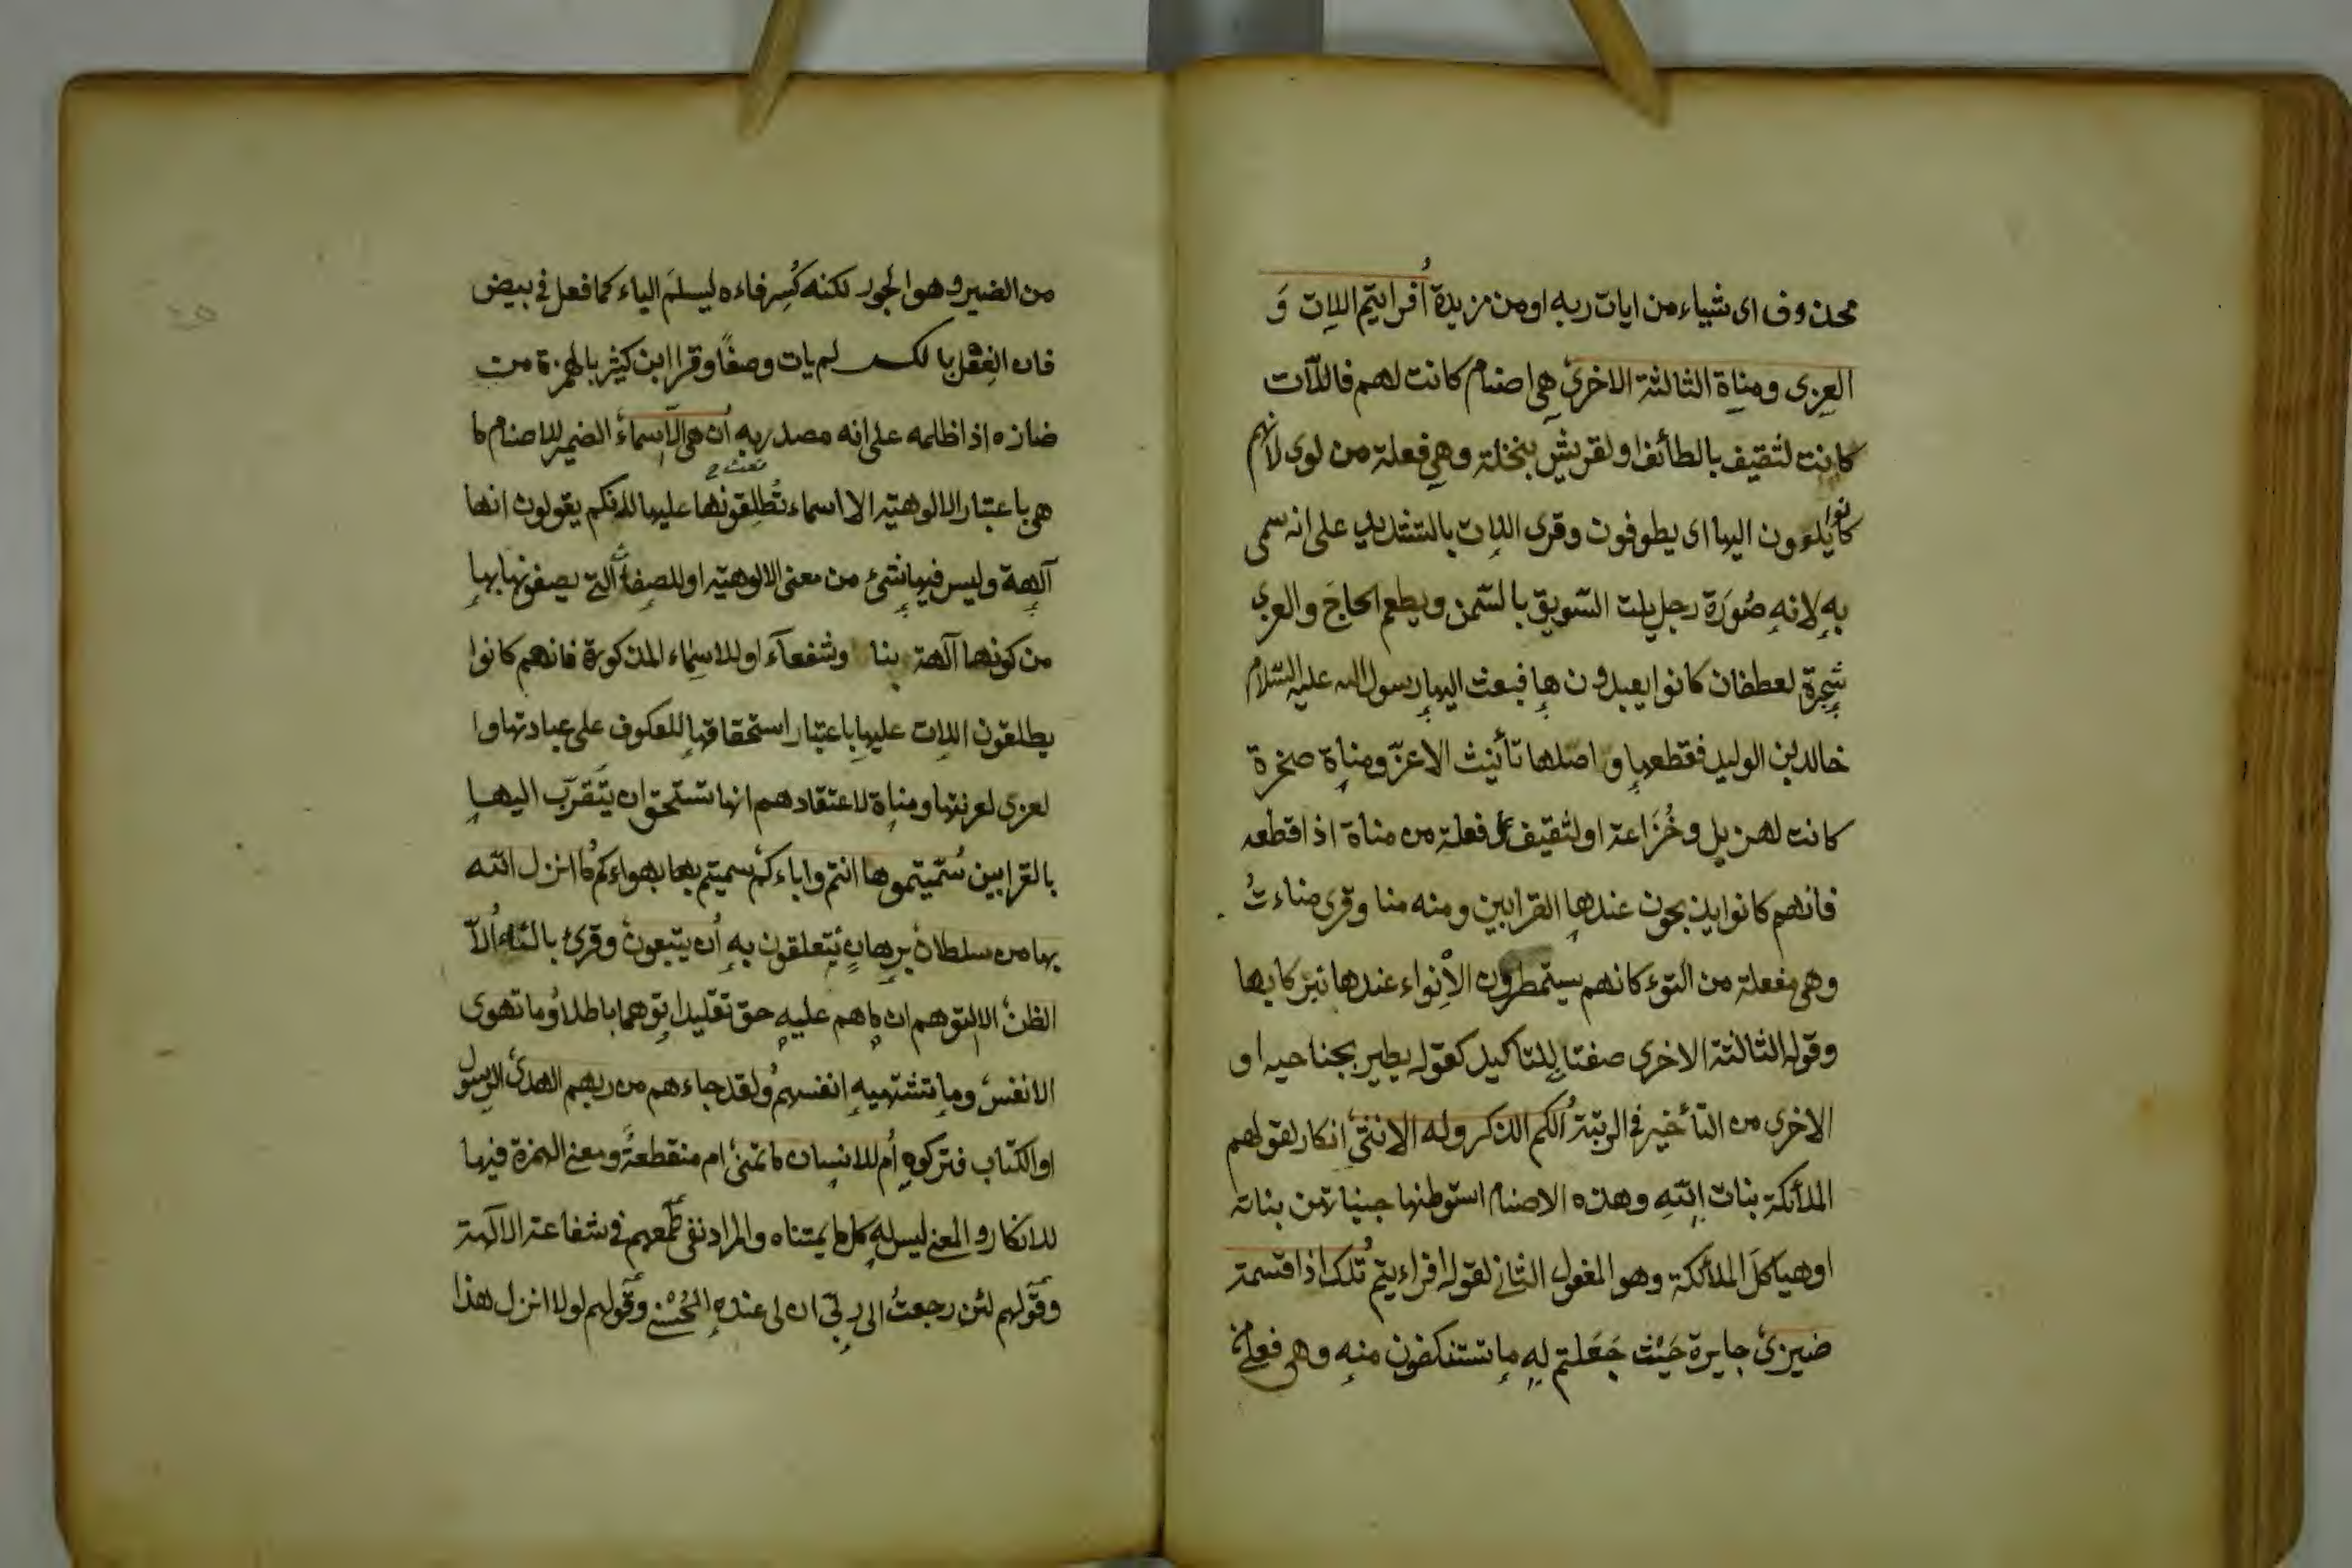 محذوف اى شياء من ايات ربه او من مزيدة أفرايتم اللات و
العزى ومناة الثالثة الاخرى هى اصنام كانت لهم فاللآت
كانت لثقيف بالطائف او لقريش بنخلة وهى فعلة من لوى لانهم
كانوا يلوون اليها اى يطوفون وقرى اللات بالتشديد على انه سمى
به لانه صُورَة رجل يلت السّويق بالسّمن ويطعم الحاجَ والعزى
شجرة لغطفان كانوا يعبدون ها فبعث اليها رسول الله عليه السّلام
خالد بن الوليد فقطعها واصلها تأنيث الاعزّ ومناة صخرة
كانت لهزيل وخُزَاعة او لثقيف فعلة من مناة اذا قطعه
فانهم كانوا يذبحون عندها القرابين ومنه منا وقرى مناءتُ
وهى مفعلة من النّوء كانهم سيتمطرون الأنواء عندها تبركا بها
وقوله الثالثة الاخرى صفتا للتاكيد كقوله يطير بجناحيه او
الاخرى من التأخير فى الرتبة ألكم الذكر وله الانثى انكار لقولهم
الملائكة بنات اللّه وهذه الاصنام استوطنها جنيات هن بناته
او هياكلَ الملائكة وهو المفعول الثانى لقوله افراءيتم تُلك اذا قسمة
ضيزى جايرة حَيْث جَعَلتم له ما تستنكفون منه وهى فعلى
من الضيز وهو الجور لكنه كُسِر فاءه ليسلمَ الياء كما فعل فى بيض
فان الفعلى بالكسر لم يات وصفًا وقرا ابن كثير بالهمزة من
ضازه اذا ظلمه على انه مصدر به أن هى الّا اسماء الضمير للاصنام ما
هى باعتبار الالوهية الا اسماء تُطلِقونها عليها لانكم يقولون انها
آلهة وليس فيها شئ من معنى الالوهية او للصفات التى يصفونها بها
من كونها آلهة بنا وشفعآء او للاسماء المذكورة فانهم كانوا
يطلقون اللات عليها باعتبار استحقاقها للعكوف على عبادتها وا
لعزى لعزتها ومناة لاعتقادهم انها تستحق ان يتَقرّب اليها
بالقرابين سُمّيتموها انتم واباءكم سميتم بها بهواءكم مُا انزل اللّه
بها من سلطان برهانٍ يتعلقون به أن يتبعون وقرئ بالتاء ألّا
الظن الا التوهم ان ما هم عليه حق تقليدا وتوهما باطلا وُما تهوى
الانفس وما تشتهيه انفسهم وُلقد جاءهم من ربهم الهدى الرسول
او الكتاب فتركوه أم للانسان ما تمنى ام منقطعةً ومعنى الهمزة فيها
للانكار والمعنى ليس له كل ما يمتناه والمراد نفى طمعهم فى شفاعة الآلهة
وقولهم لئن رجعتُ الى ربّى ان لى عنده الحُسْنى وقولهم لولا انزل هذا